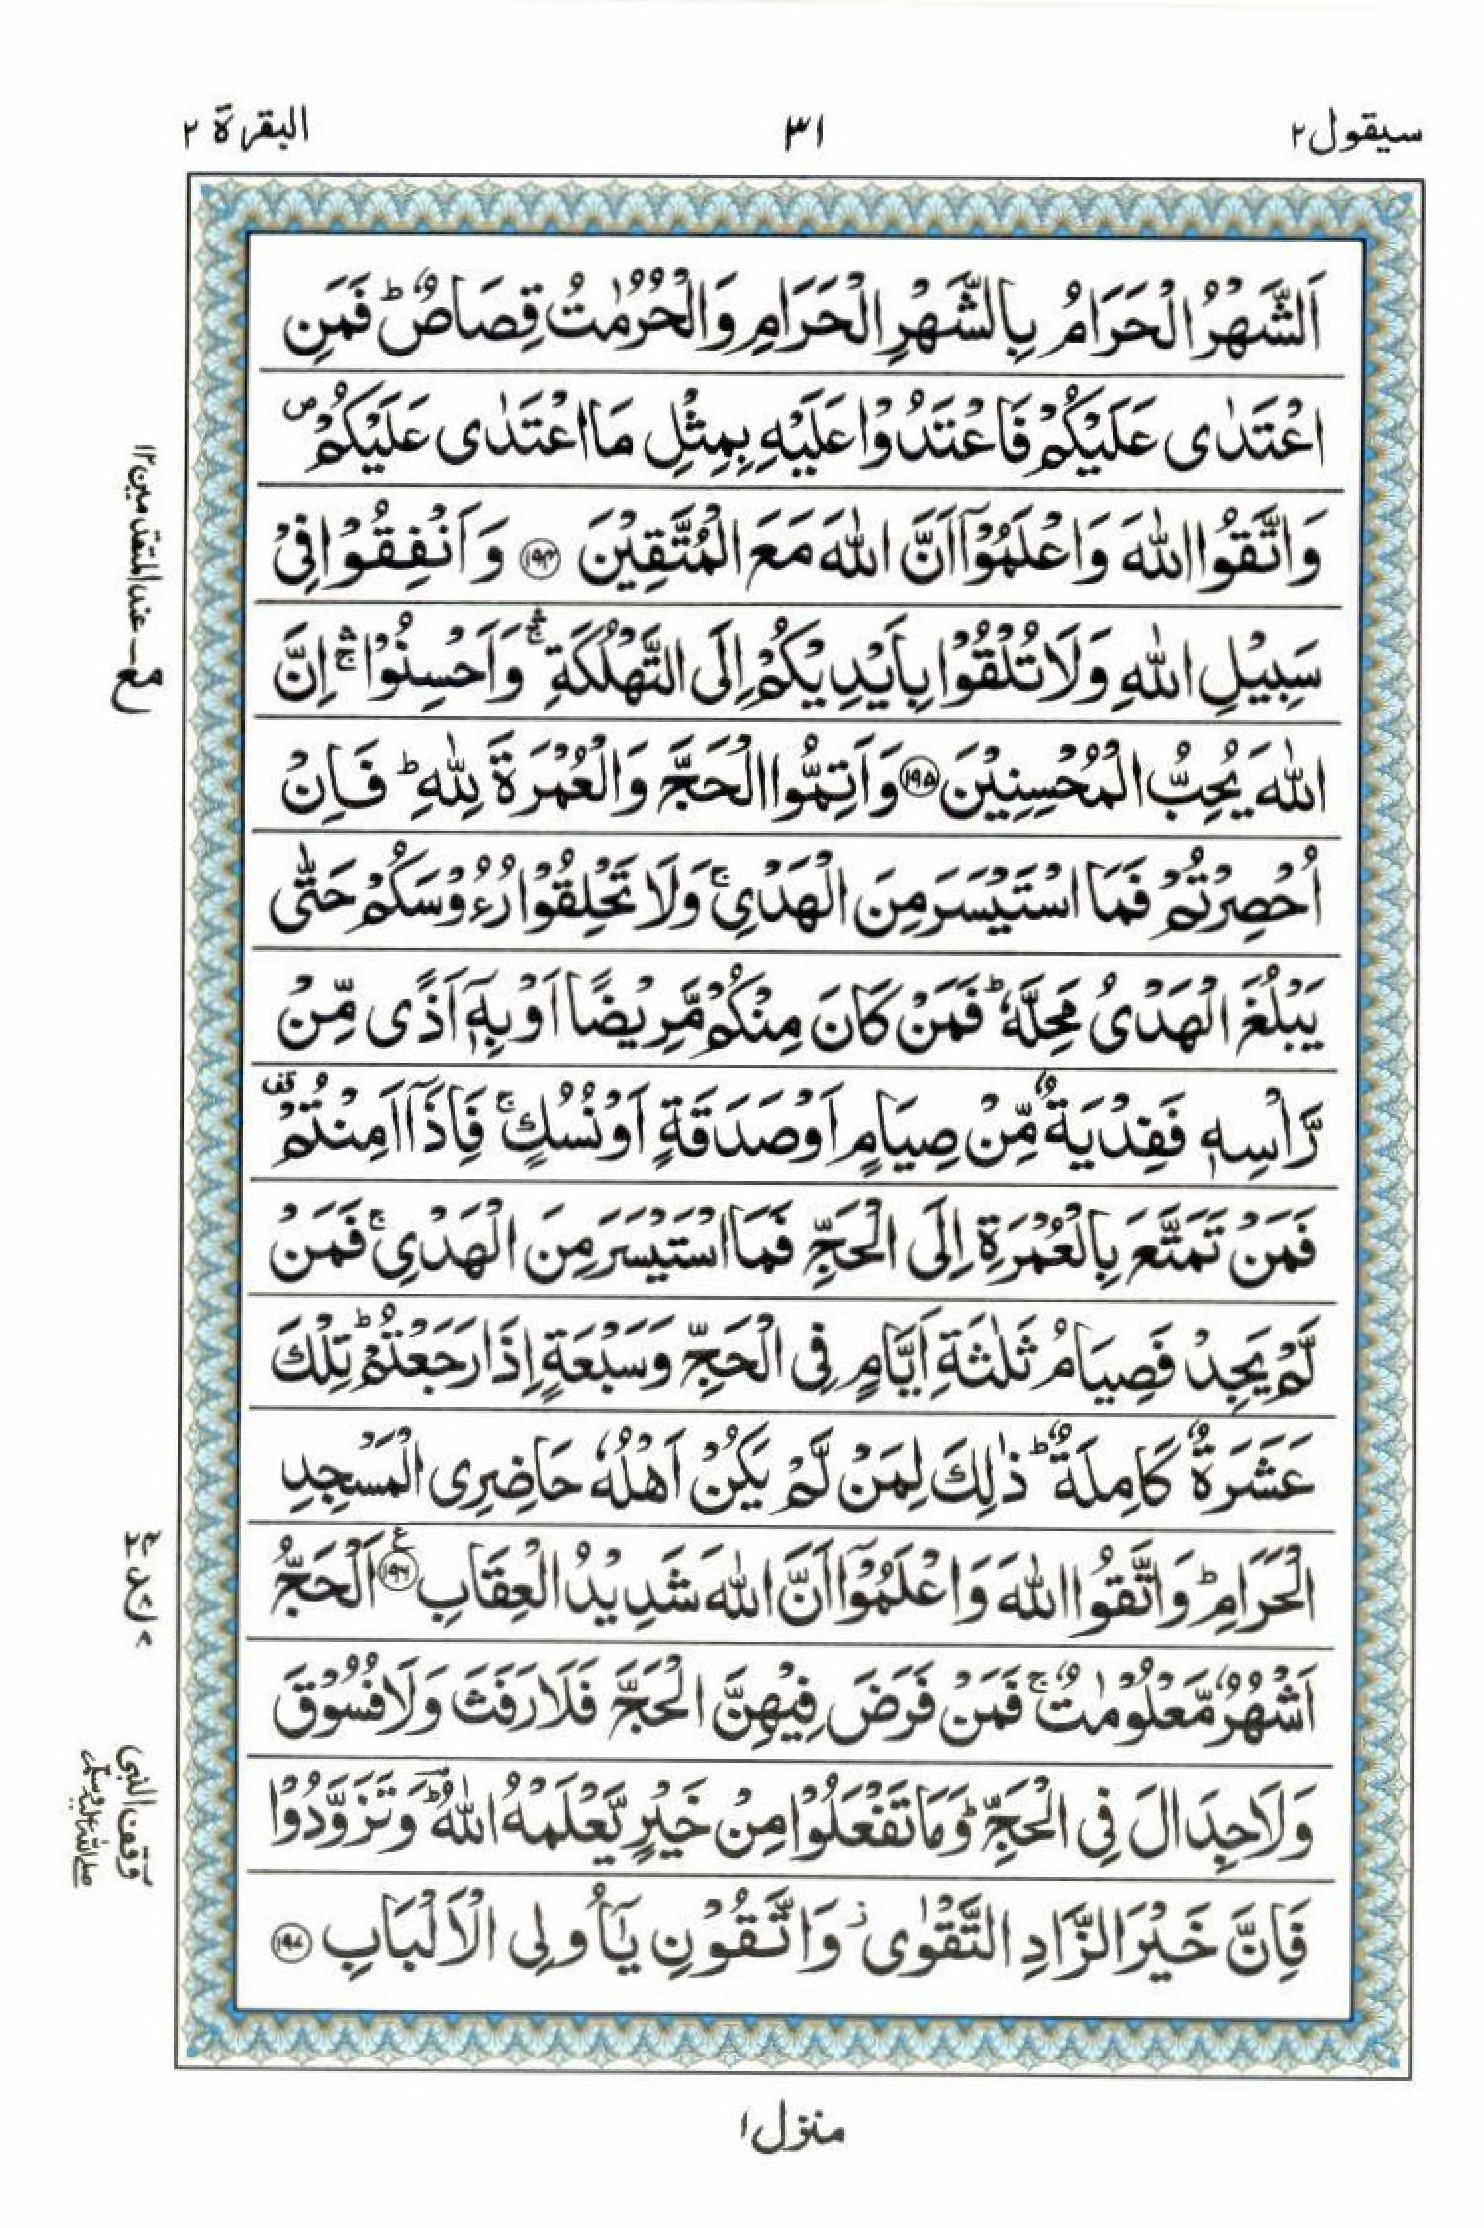 سيقول ٢
٣١
البقرة ٢
اَلشَّهْرُ الْحَرَامُ بِالشَّهْرِ الْحَرَامِ وَالْحُرُمٰتُ قِصَاصٌ ؕ فَمَنِ
اعْتَدٰى عَلَيْكُمْ فَاعْتَدُوْا عَلَيْهِ بِمِثْلِ مَا اعْتَدٰى عَلَيْكُمْ ۪
وَاتَّقُوا اللّٰهَ وَاعْلَمُوْۤا اَنَّ اللّٰهَ مَعَ الْمُتَّقِيْنَ ۝۱۹۴ وَاَنْفِقُوْا فِىْ
سَبِيْلِ اللّٰهِ وَلَا تُلْقُوْا بِاَيْدِيْكُمْ اِلَى التَّهْلُكَةِ ۛۚ وَاَحْسِنُوْا ۛۚ اِنَّ
اللّٰهَ يُحِبُّ الْمُحْسِنِيْنَ ۝۱۹۵ وَاَتِمُّوا الْحَجَّ وَالْعُمْرَةَ لِلّٰهِ ؕ فَاِنْ
اُحْصِرْتُمْ فَمَا اسْتَيْسَرَ مِنَ الْهَدْىِ ۚ وَلَا تَحْلِقُوْا رُءُوْسَكُمْ حَتّٰى
يَبْلُغَ الْهَدْىُ مَحِلَّهٗ ؕ فَمَنْ كَانَ مِنْكُمْ مَّرِيْضًا اَوْ بِهٖۤ اَذًى مِّنْ
رَّاْسِهٖ فَفِدْيَةٌ مِّنْ صِيَامٍ اَوْ صَدَقَةٍ اَوْ نُسُكٍ ۚ فَاِذَاۤ اَمِنْتُمْ قف
فَمَنْ تَمَتَّعَ بِالْعُمْرَةِ اِلَى الْحَجِّ فَمَا اسْتَيْسَرَ مِنَ الْهَدْىِ ۚ فَمَنْ
لَّمْ يَجِدْ فَصِيَامُ ثَلٰثَةِ اَيَّامٍ فِى الْحَجِّ وَسَبْعَةٍ اِذَا رَجَعْتُمْ ؕ تِلْكَ
عَشَرَةٌ كَامِلَةٌ ؕ ذٰلِكَ لِمَنْ لَّمْ يَكُنْ اَهْلُهٗ حَاضِرِى الْمَسْجِدِ
الْحَرَامِ ؕ وَاتَّقُوا اللّٰهَ وَاعْلَمُوْۤا اَنَّ اللّٰهَ شَدِيْدُ الْعِقَابِ ۝۱۹۶ ع اَلْحَجُّ
اَشْهُرٌ مَّعْلُوْمٰتٌ ۚ فَمَنْ فَرَضَ فِيْهِنَّ الْحَجَّ فَلَا رَفَثَ وَلَا فُسُوْقَ
وَلَا جِدَالَ فِى الْحَجِّ ؕ وَمَا تَفْعَلُوْا مِنْ خَيْرٍ يَّعْلَمْهُ اللّٰهُ ؕؔ وَتَزَوَّدُوْا
فَاِنَّ خَيْرَ الزَّادِ التَّقْوٰى ز وَاتَّقُوْنِ يٰۤاُولِى الْاَلْبَابِ ۝۱۹۷
مع ـ عند المتقدمين ١٢
وقف النبى
صلى الله عليه وسلم
منزل ١